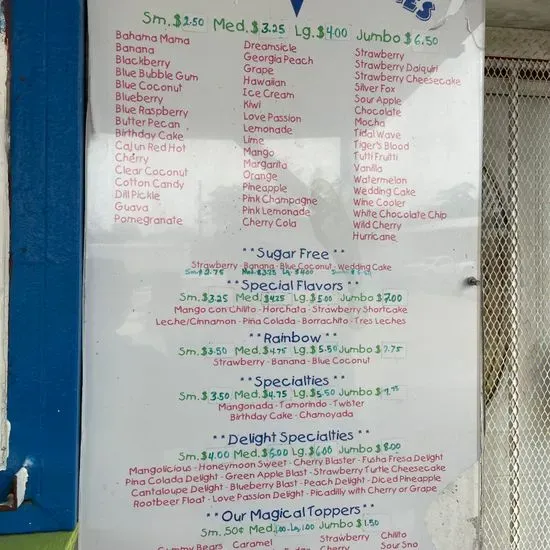 Sm. $2.50 Med. $3.25 Lg. $4.00 Jumbo $6.50
Bahama Mama
Banana
Blackberry
Blue Bubble Gum
Blue Coconut
Blueberry
Blue Raspberry
Butter Pecan
Birthday Cake
Cajun Red Hot
Cherry
Clear Coconut
Cotton Candy
Dill Pickle
Guava
Pomegranate
Dreamsicle
Georgia Peach
Grape
Hawaiian
Ice Cream
Kiwi
Love Passion
Lemonade
Lime
Mango
Margarita
Orange
Pineapple
Pink Champagne
Pink Lemonade
Cherry Cola
Strawberry
Strawberry Daiquiri
Strawberry Cheesecake
Silver Fox
Sour Apple
Chocolate
Mocha
Tidal Wave
Tiger's Blood
Tutti Frutti
Vanilla
Watermelon
Wedding Cake
Wine Cooler
White Chocolate Chip
Wild Cherry
Hurricane
**Sugar Free**
Strawberry - Banana - Blue Coconut - Wedding Cake
Sm. $2.75 Med. $3.25 Lg. $4.00
**Special Flavors**
Sm. $3.25 Med. $4.25 Lg. $5.00 Jumbo $7.00
Mango con Chilito - Horchata - Strawberry Shortcake
Leche/Cinnamon - Pina Colada - Borrachito - Tres Leches
**Rainbow**
Sm. $3.50 Med. $4.75 Lg. $5.50 Jumbo $7.75
Strawberry - Banana - Blue Coconut
**Specialties**
Sm. $3.50 Med. $4.75 Lg. $5.50 Jumbo $7.75
Mangonada - Tamorindo - Twister
Birthday Cake - Chamoyada
**Delight Specialties**
Sm. $4.00 Med. $5.00 Lg. $6.00 Jumbo $8.00
Mangolicious - Honeymoon Sweet - Cherry Blaster - Fusha Fresa Delight
Pina Colada Delight - Green Apple Blast - Strawberry Turtle Cheesecake
Cantaloupe Delight - Blueberry Blast - Peach Delight - Diced Pineapple
Rootbeer Float - Love Passion Delight - Picadilly with Cherry or Grape
**Our Magical Toppers**
Sm. 50¢ Med. 1.00 Lg. 1.00 Jumbo $1.50
Gummy Bears Caramel Strawberry Chilito
Cherry Sour Sno